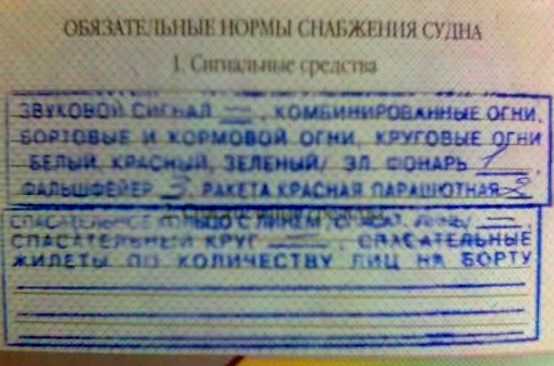 ОБЯЗАТЕЛЬНЫЕ НОРМЫ СНАБЖЕНИЯ СУДНА
1. Сигнальные средства
ЗВУКОВОЙ СИГНАЛ —, КОМБИНИРОВАННЫЕ ОГНИ,
БОРТОВЫЕ И КОРМОВОЙ ОГНИ, КРУГОВЫЕ ОГНИ
/БЕЛЫЙ, КРАСНЫЙ, ЗЕЛЕНЫЙ/ ЭЛ. ФОНАРЬ 1,
ФАЛЬШФЕЙЕР 3, РАКЕТА КРАСНАЯ ПАРАШЮТНАЯ
СПАСАТЕЛЬНОЕ КОЛЬЦО С ЛИНЕМ,
СПАСАТЕЛЬНЫЙ КРУГ —, СПАСАТЕЛЬНЫЕ
ЖИЛЕТЫ ПО КОЛИЧЕСТВУ ЛИЦ НА БОРТУ